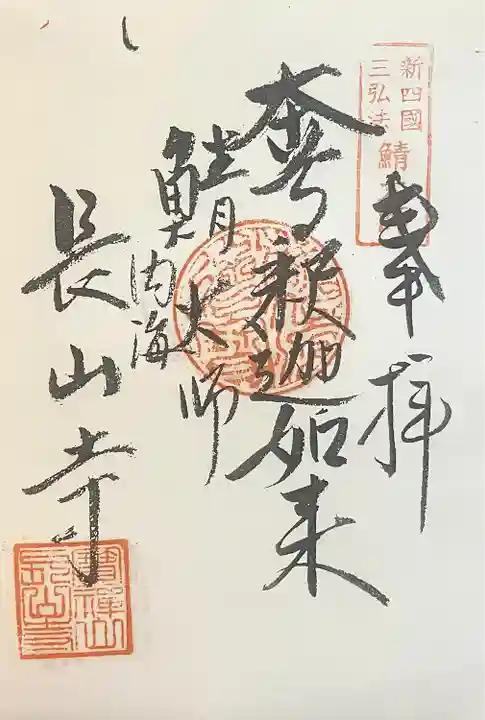 新四國
三弘法
鯖
奉拝
本尊釈迦如来
鯖大師
内海
長山寺